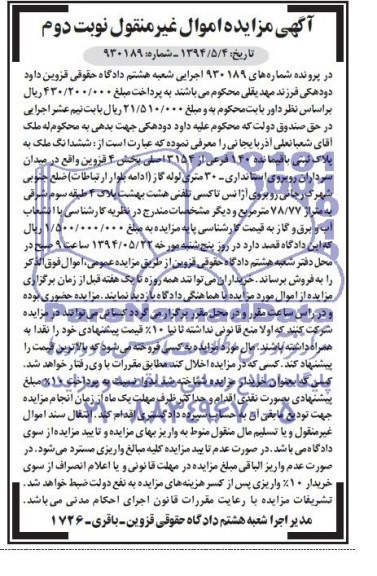 آگهی مزایده اموال غیرمنقول نوبت دوم
تاریخ: ۱۳۹۴/۵/۴ ـ شماره: ۹۳۰۱۸۹
در پرونده شماره‌های ۹۳۰۱۸۹ اجرایی شعبه هشتم دادگاه حقوقی قزوین داود
دودهکی فرزند مهدیقلی محکوم می‌باشند به پرداخت مبلغ ۴۳۰/۲۰۰/۰۰۰ ریال
براساس نظر داور بابت محکوم به و مبلغ ۲۱/۵۱۰/۰۰۰ ریال بابت نیم عشر اجرایی
در حق صندوق دولت که محکوم علیه داود دودهکی جهت بدهی به محکوم له ملک
آقای شعبانعلی آذربایجانی را معرفی نموده که عبارت است از: ششدانگ ملک به
پلاک ثبتی باقیمانده ۱۴۰ فرعی از ۳۱۵۴ اصلی بخش ۴ قزوین واقع در میدان
سرداران روبروی استانداری ـ ۳۰ متری لوله گاز (ادامه بلوار ارتباطات) ضلع جنوبی
شهرک رجائی روبروی آژانس تاکسی تلفنی هشت بهشت پلاک ۴ طبقه سوم شرقی
به متراژ ۷۸/۷۷ مترمربع و دیگر مشخصات مندرج در نظریه کارشناسی با انشعاب
آب و برق و گاز به قیمت کارشناسی پایه مزایده به مبلغ ۱/۵۰۰/۰۰۰/۰۰۰ ریال
که این دادگاه قصد دارد در روز پنج‌شنبه مورخه ۱۳۹۴/۰۵/۲۲ ساعت ۹ صبح در
محل دفتر شعبه هشتم دادگاه حقوقی قزوین از طریق مزایده عمومی، اموال فوق‌الذکر
را به فروش برساند. خریداران می‌توانند همه روزه تا یک هفته قبل از زمان برگزاری
مزایده از اموال مورد مزایده با هماهنگی دادگاه بازدید نمایند. مزایده حضوری بوده
و در راس ساعت مقرر و در محل مقرر برگزار می‌گردد کسانی می‌توانند در مزایده
شرکت کنند که اولا منع قانونی نداشته ثانیا ۱۰٪ قیمت پیشنهادی خود را نقدا به
همراه داشته باشند. مال مورد مزایده به کسی فروخته می‌شود که بالاترین قیمت را
پیشنهاد کند. کسی که در مزایده اخلال کند مطابق مقررات با وی رفتار خواهد شد.
کسی که بعنوان خریدار مزایده شناخته شد لذا نسبت به پرداخت ۱۰٪ مبلغ
پیشنهادی بصورت نقدی اقدام و حداکثر ظرف مهلت یک ماه از زمان انجام مزایده
جهت تودیع مابقی آن به حساب سپرده دادگستری اقدام کند. انتقال سند اموال
غیرمنقول و یا تسلیم مال منقول منوط به واریز بهای مزایده و تایید مزایده از سوی
دادگاه می‌باشد. در صورت عدم تایید مزایده کلیه مبالغ واریزی مسترد می‌شود. در
صورت عدم واریز الباقی مبلغ مزایده در مهلت قانونی و یا اعلام انصراف از سوی
خریدار ۱۰٪ واریزی پس از کسر هزینه‌های مزایده به نفع دولت ضبط خواهد شد.
تشریفات مزایده با رعایت مقررات قانون اجرای احکام مدنی می‌باشد.
مدیر اجرا شعبه هشتم دادگاه حقوقی قزوین ـ باقری ـ ۱۷۲۶